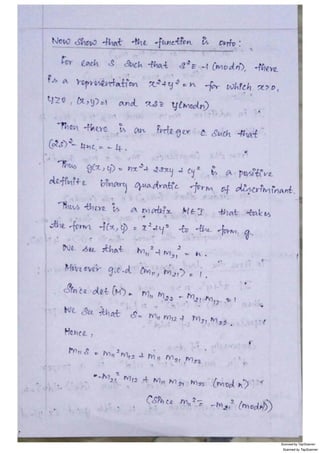 Now show that the function is onto:
For each s such that s² ≡ -1 (modn), there
is a representation x²+y² = n for which x>0,
y≥0, (x,y)=1 and xs ≡ y(modn)
Then there is an integer c such that
(2s)² - 4nc = -4.
Thus g(x,y) = nx²+2sxy+cy² is a positive
definite binary quadratic form of discriminant.
Thus there is a matrix M∈Γ that takes
the form f(x,y) = x²+y² to the form g.
We see that m₁₁²+m₂₁² = n.
Moreover g.c.d (m₁₁, m₂₁) = 1.
Since det(M) = m₁₁ m₂₂ - m₂₁ m₁₂ = 1
We see that s = m₁₁ m₁₂ + m₂₁ m₂₂.
Hence,
m₁₁ s = m₁₁² m₁₂ + m₁₁ m₂₁ m₂₂
= -m₂₁² m₁₂ + m₁₁ m₂₁ m₂₂ (mod n)
(Since m₁₁² ≡ -m₂₁² (modn))
Scanned by TapScanner
Scanned by TapScanner